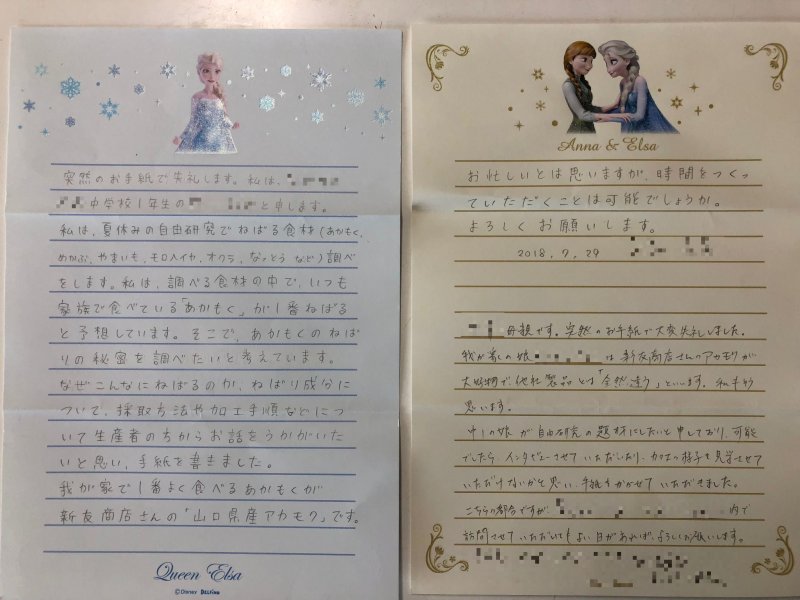 突然のお手紙で失礼します。私は、
中学校1年生の と申します。
私は、夏休みの自由研究でねばる食材(あかもく、
めかぶ、やまいも、モロヘイヤ、オクラ、なっとうなど)調べ
をします。私は、調べる食材の中で、いつも
家族で食べている「あかもく」が1番ねばる
と予想しています。そこで、あかもくのねば
りの秘密を調べたいと考えています。
なぜこんなにねばるのか、ねばり成分に
ついて、採取方法や加工手順などにつ
いて生産者の方からお話をうかがいた
いと思い、手紙を書きました。
我が家で1番よく食べるあかもくが
新友商店さんの「山口県産アカモク」です。
Queen Elsa
©Disney DELFINO
Anna & Elsa
お忙しいとは思いますが、時間をつくっ
ていただくことは可能でしょうか。
よろしくお願いします。
2018.7.29
母親です。突然のお手紙で大変失礼しました。
我が家の娘 は新友商店さんのアカモクが
大好物で、他社製品とは「全然違う」といいます。私もそう
思います。
中1の娘が自由研究の題材にしたいと申しており、可能
でしたら、インタビューさせていただいたり、加工の様子を見学させて
いただけないかと思い、手紙をかかせていただきました。
こちらの都合ですが、 内で
訪問させていただいてもよい日があれば、よろしくお願いします。